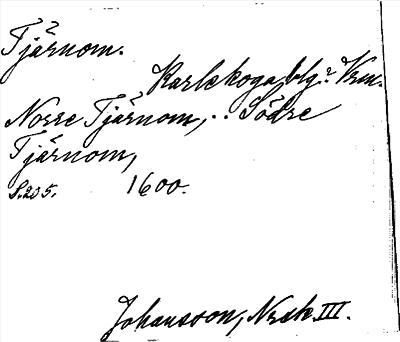 Tjärnom.
Karlskoga, blg? Vrm.
Norre Tjärnom, .. Södre
Tjärnom,
S.205. 1600.
Johansson, Norsk III.